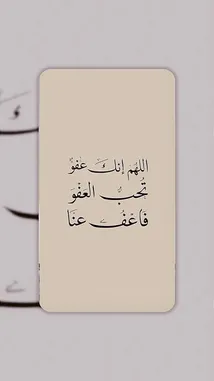 اللهم إنك عفو
تُحبُّ العَفْوَ
فَاعْفُ عنَّا